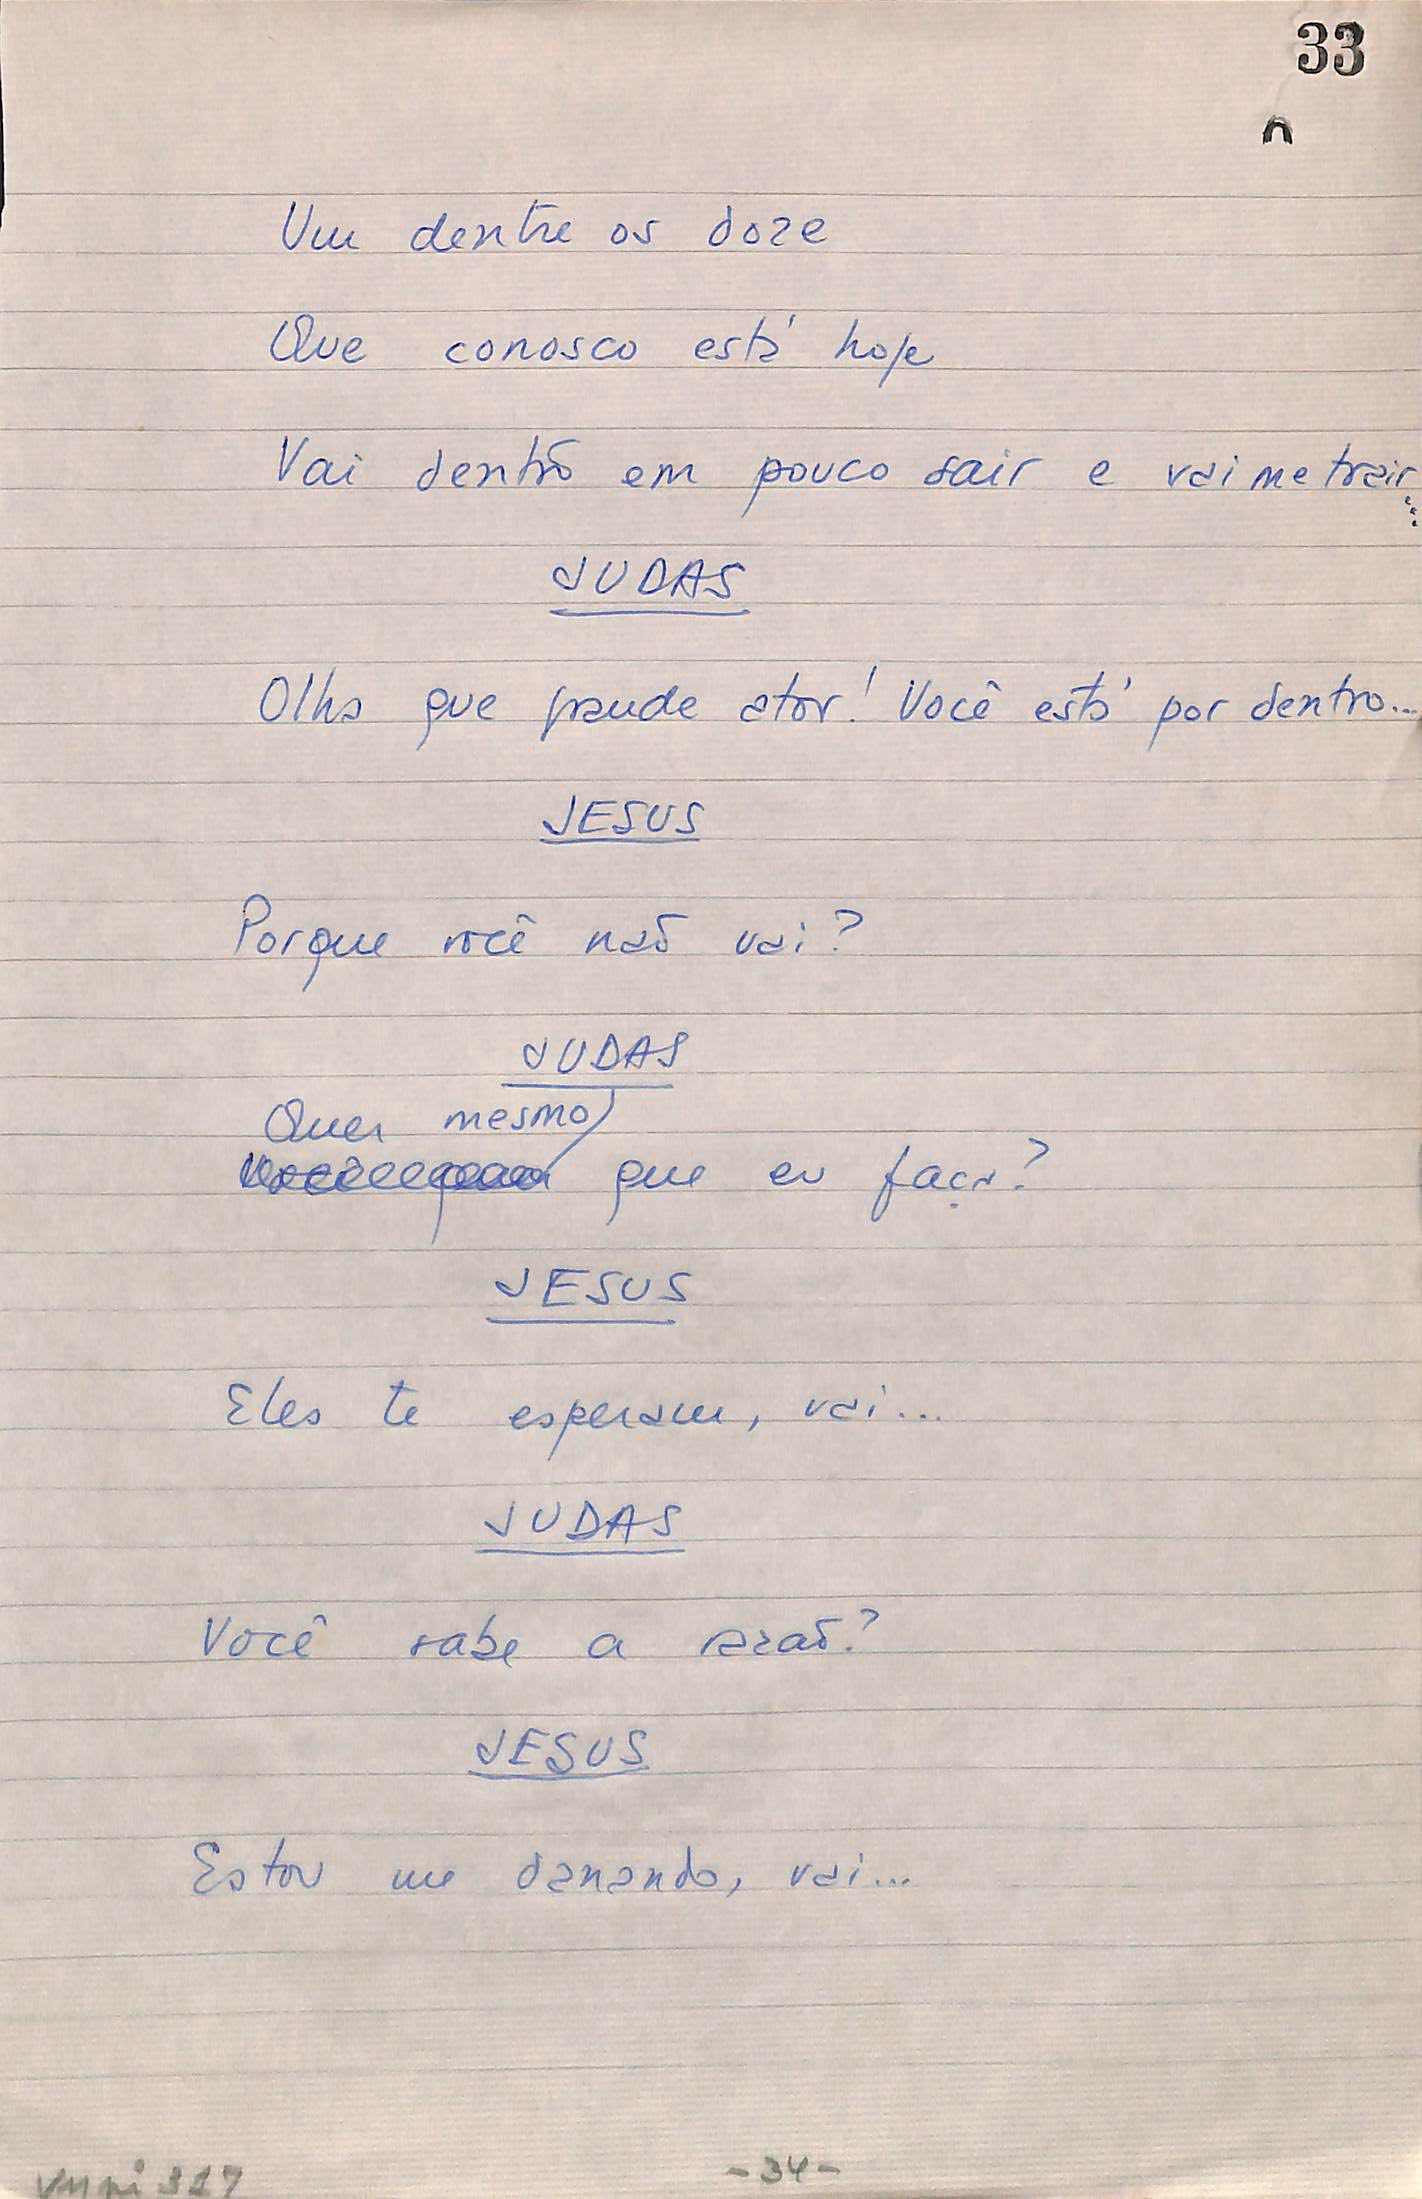 33
Um dentre os doze
Que conosco está hoje
Vai dentro em pouco sair e vai me trair...
JUDAS
Olha que grande ator! Você está por dentro...
JESUS
Porque você não vai?
JUDAS
Quer mesmo
que eu faça?
JESUS
Eles te esperam, vai...
JUDAS
Você sabe a razão?
JESUS
Estou me danando, vai...
-34-